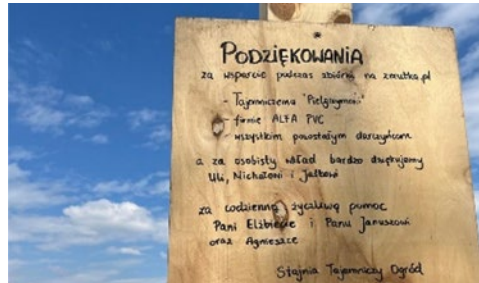 PODZIĘKOWANIA
za wsparcie podczas zbiórki na zrzutka.pl
- Tajemniczemu "Pielgrzymowi"
- firmie ALFA PVC
- wszystkim pozostałym darczyńcom
a za osobisty wkład bardzo dziękujemy
Uli, Nichałowi i
za codzienną życzliwą pomoc
Pani Elżbiecie i Panu Januszowi
oraz Agnieszce
Stajnia Tajemniczy Ogród